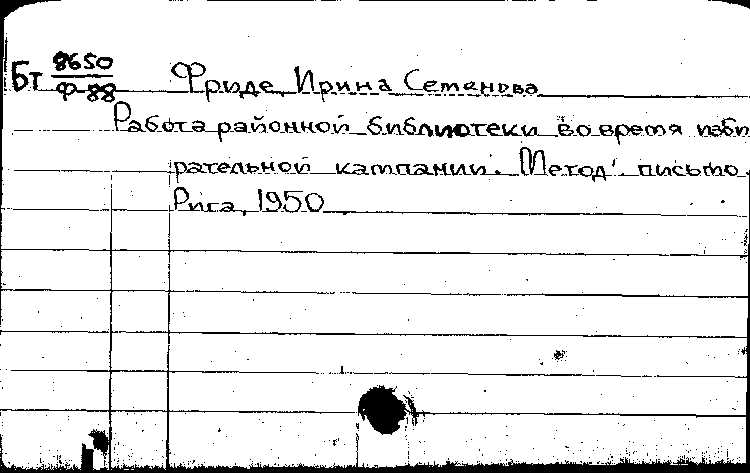 Бт 8650
Ф-88
Фриде, Ирина Семеновна
Работа районной библиотеки во время изби
рательной кампании. Метод. письмо.
Рига, 1950